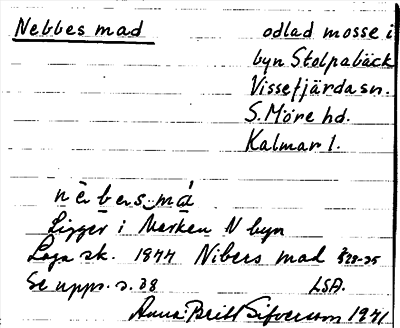 Nebbes mad
odlad mosse i
byn Stolpabäck
Vissefjärda sn.
S. Möre hd.
Kalmar l.
nèbers má
Ligger i Marken N byn
Laga sk. 1877 Nibers mad
Se upps. s. 28 LSA.
Anna-Britt Sifverson 1971